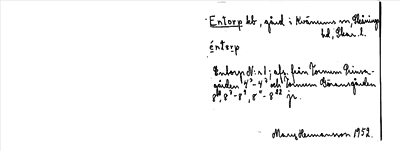 Entorp hb, gård i Kvänums sn, Skånings
hd, Skar. l.
éntɛrp
Entorp N:o 1; afs. från Tornum Prins-
gården 4⁵-4⁷ och Tornum Göransgården
8⁶, 8⁷-8⁹, 8¹¹-8²² jr.
Mary Hermansson 1952.